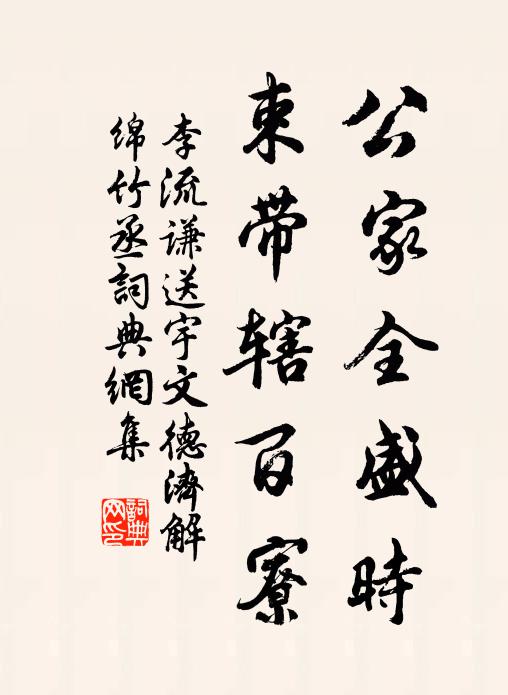 公家全盛時
束带辖百寮
李流谦送宇文德濟解
绵竹丞詞典網集
詞典网印